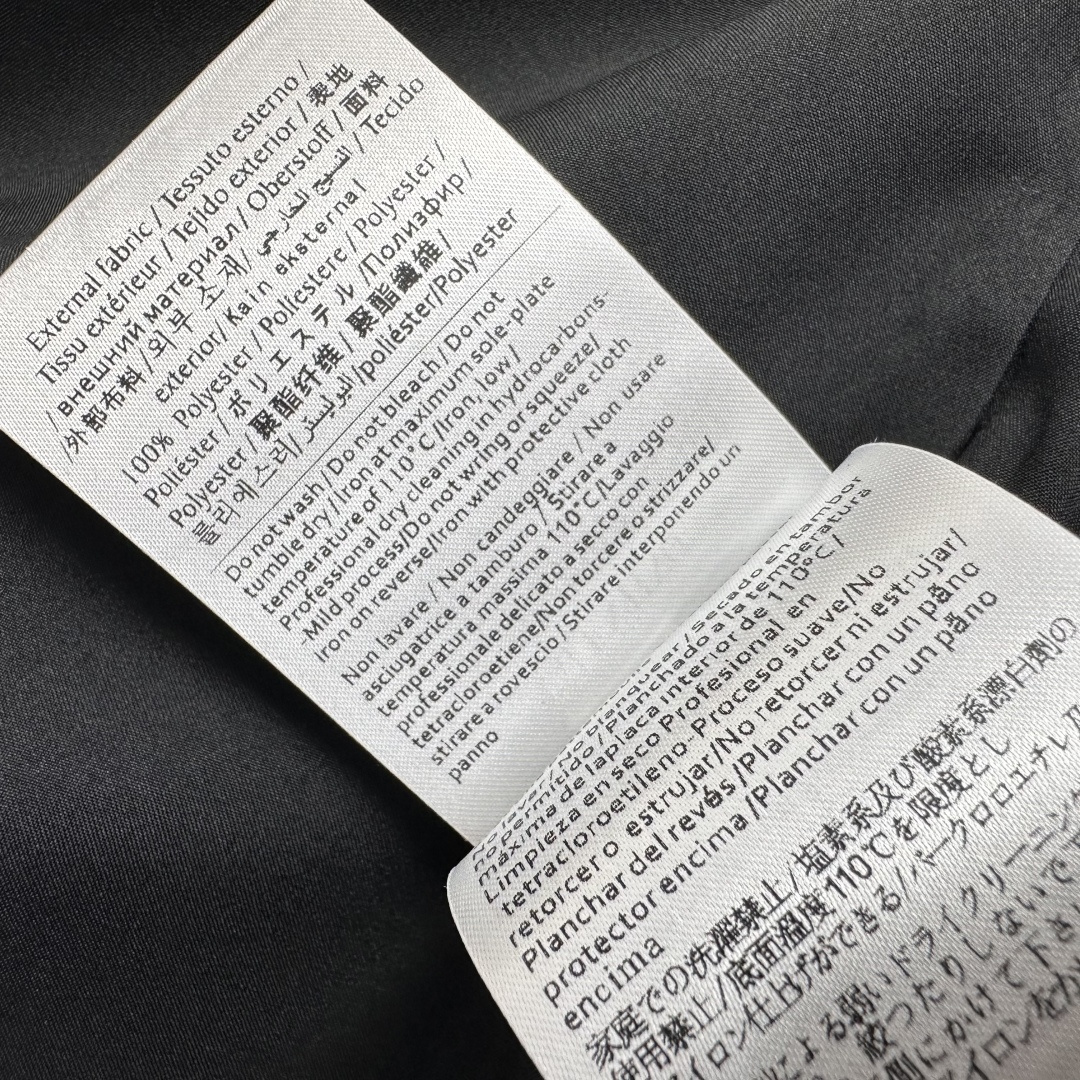 External fabric / Tessuto esterno /
Tissu extérieur / Tejido exterior / 表地
/ внешний материал / Oberstoff / 面料
/外部布料 /외부 소재/ النسيج الخارجي / Tecido
exterior/ Kain eksternal
100% Polyester / Poliestere / Polyester /
Poliéster / ポリエステル /Полиэфир /
Polyester / 聚酯纤维 / 聚酯纖維 /
폴리에스테르/ البوليستر /poliéster/Polyester
Do not wash / Do not bleach / Do not
tumble dry / Iron at maximum sole-plate
temperature of 110°C/Iron, low /
Professional dry cleaning in hydrocarbons-
-Mild process/Do not wring or squeeze/
Iron on reverse/Iron with protective cloth
Non lavare / Non candeggiare / Non usare
asciugatrice a tamburo / Stirare a
temperatura massima 110°C/Lavaggio
professionale delicato a secco con
tetracloroetiene/Non torcere o strizzare/
stirare a rovescio/Stirare interponendo un
panno
No lavar/No blanquear/Secado en tambor
no permitido /Planchado a la temperatura
máxima de la placa interior de 110°C/
Limpieza en seco Profesional en
tetracloroetileno- Proceso suave/No
retorcer o estrujar/No retorcer ni estrujar/
Planchar del revés/Planchar con un paño
protector encima/Planchar con un paño
encima
家庭での洗濯禁止/塩素系及び酸素系漂白剤の
使用禁止/底面温度110℃を限度とし
アイロン仕上げができる/パークロロエチレ
による弱いドライクリーニング
絞ったりしないで下
側にかけて下さい
アイロンをか